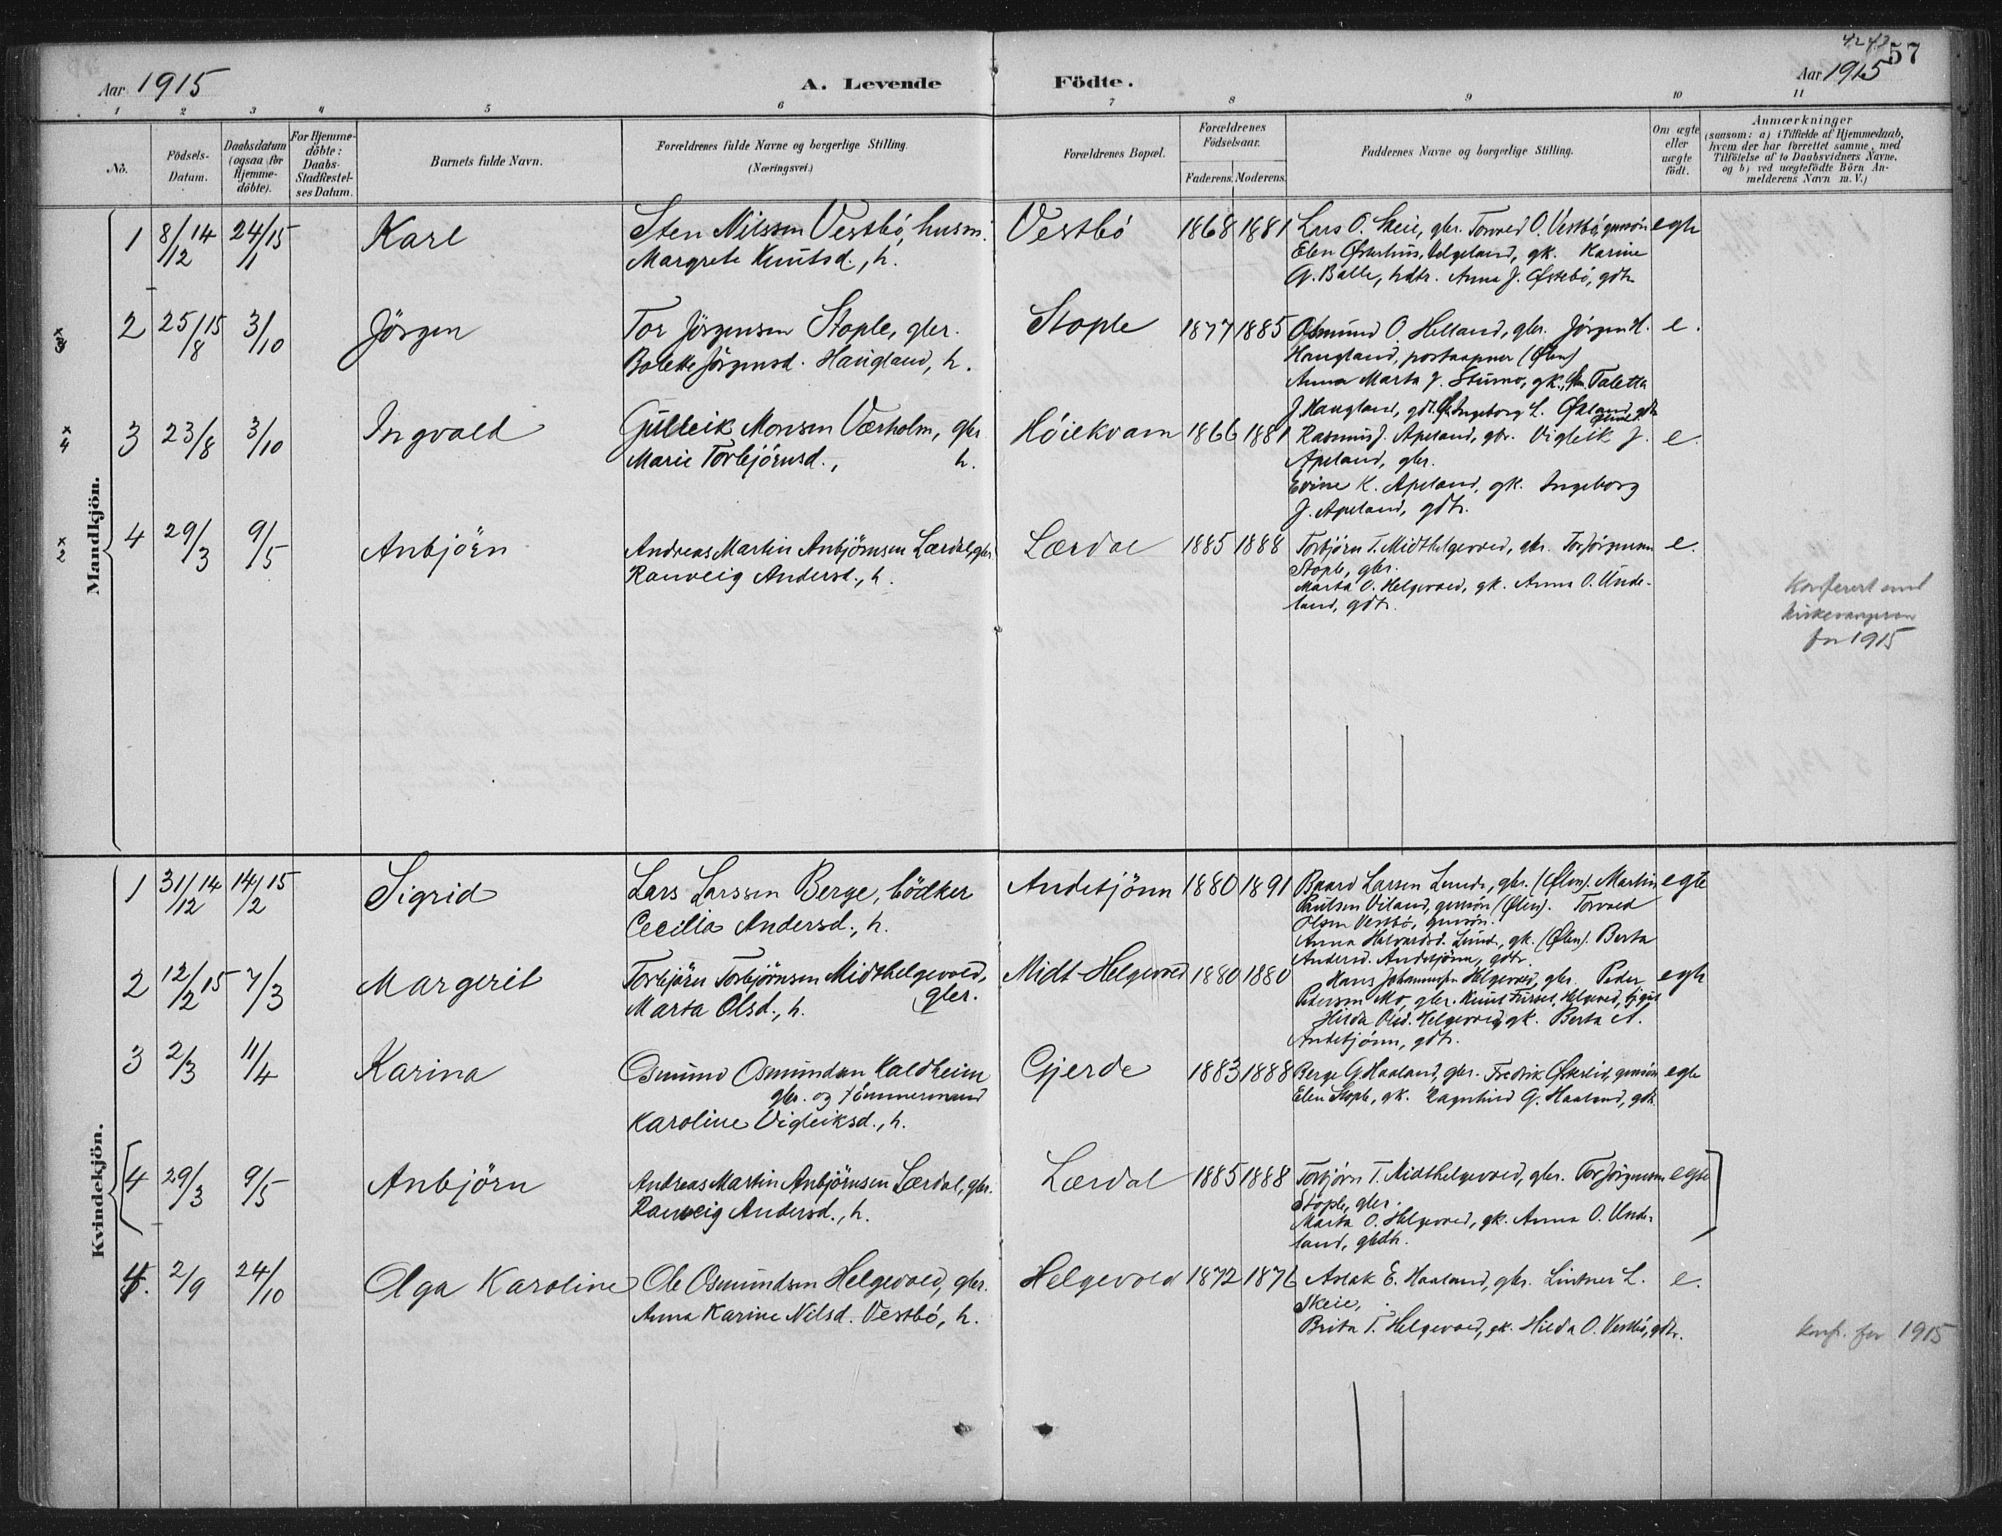 42 43
57
Aar 1915
A. Levende
Födte.
Aar 1915
1 2 3 4 5 6 7 8 9 10 11
No.
Födsels-
Datum.
Daabsdatum
(ogsaa for
Hjemme-
döbte).
For Hjemme-
döbte:
Daabs-
Stadfæstel-
ses Datum.
Barnets fulde Navn.
Forældrenes fulde Navne og borgerlige Stilling.
(Næringsvei.)
Forældrenes Bopæl.
Forældrenes
Födselsaar.
Faderens. Moderens.
Faddernes Navne og borgerlige Stilling.
Om ægte
eller
uægte
födt.
Anmærkninger
(saasom: a) i Tilfælde af Hjemmedaab,
hvem der har forrettet samme, med
Tilföielse af to Daabsvidners Navne,
og b) ved uægtefödte Börn An-
melderens Navn m. V.)
Mandkjön.
1 8/12 14 24/1 15 Karl
Sten Nilssen Vestbö, husm.
Margrete Knutsd., h.
Vestbö 1868 1881
Lars O. Skeie, gbr. Torvald O. Vestbö, gmsön
Elen Østerhus, Helgeland, gk. Karine
G. Balle, hdtr. Anna J. Østebö, gdtr.
egte
x3
2 25/8 15 3/10 Jörgen
Tor Jörgensen Stople, gbr.
Bolette Jörgensd. Haugland, h.
Stople 1877 1885
Osmund O. Helland, gbr. Jörgen H.
Haugland, postaapner (Ølen)
Anna Marta J. Stumo, gk., Taletta
J. Haugland, gdt. Ingeborg L. Økland, gdtr.
e.
x4
3 23/8 3/10 Ingvald
Gulleik Monsen Værholm, gbr
Marie Torbjörnsd., h.
Höiekvam 1866 1881
Rasmus J. Apeland, gbr. Vigleik J.
Apeland, gbr.
Evine K. Apeland, gk. Ingeborg
J. Apeland, gdtr.
e.
x2
4 29/3 9/5 Anbjörn
Andreas Martin Anbjörnsen Lærdal, gbr
Ranveig Andersd., h.
Lærdal 1885 1888
Torbjörn T. Midthelgevold, gbr. Tor Jörgensen
Stople, gbr.
Marta O. Helgevold, gk. Anna O. Unde-
land, gdtr.
e.
Konferert med
kirkesangeren
for 1915
Kvindekjön.
1 31/12 14 14/2 15 Sigrid
Lars Larssen Berge, bödker
Cecilia Andersd., h.
Andetjönn 1880 1891
Baard Larsen Lunde, gbr. (Ølen). Martin
Paulsen Viland, gmsön (Ølen). Torvald
Olsen Vestbö, gmsön.
Anna Halvardsd. Lunde, gk. (Ølen). Berta
Andersd. Andetjönn, gdtr.
egte
2 12/2 15 7/3 Margerit
Torbjörn Torbjörnsen Midthelgevold,
gbr.
Marta Olsd., h.
Midt-Helgevold 1880 1880
Hans Johannesen Helgevold, gbr. Peder
Pederson Mo, gbr. Knut Furset, Helgevold,
Hilda Olsd. Helgevold, gk. Berta A.
Andetjönn, gdtr.
egte
3 2/3 11/4 Karina
Osmund Osmundsen Kaldheim
gbr. og tömmermand
Karoline Vigleiksd., h.
Gjerde 1883 1888
Berge G. Haaland, gbr. Fredrik Østerlid, gmsön
Elen Stople, gk. Ragnhild G. Haaland, gdtr.
egte
4 29/3 9/5 Anbjörn
Andreas Martin Anbjörnsen Lærdal, gbr.
Ranveig Andersd., h.
Lærdal 1885 1888
Torbjörn T. Midthelgevold, gbr. Tor Jörgensen
Stople, gbr.
Marta O. Helgevold, gk. Anna O. Unde-
land, gbdtr.
egte
4. 2/9 24/10 Olga Karoline
Ole Osmundsen Helgevold, gbr.
Anna Karine Nilsd. Vestbö, h.
Helgevold 1872 1876
Aslak E. Haaland, gbr. Lintner L.
Skeie,
Brita T. Helgevold, gk. Hilda O. Vestbö, gdtr.
e.
konf. for 1915